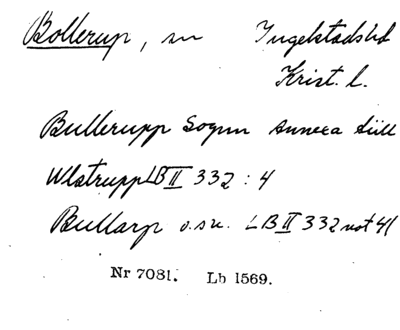 Bollerup, sn Ingelstads hd
Krist. l.
Bullerupp Sognn annexa till
Wlstrupp LB II 332 : 4
Bullarp o. sn. LB II 332 not 41
Nr 7081. Lb 1569.